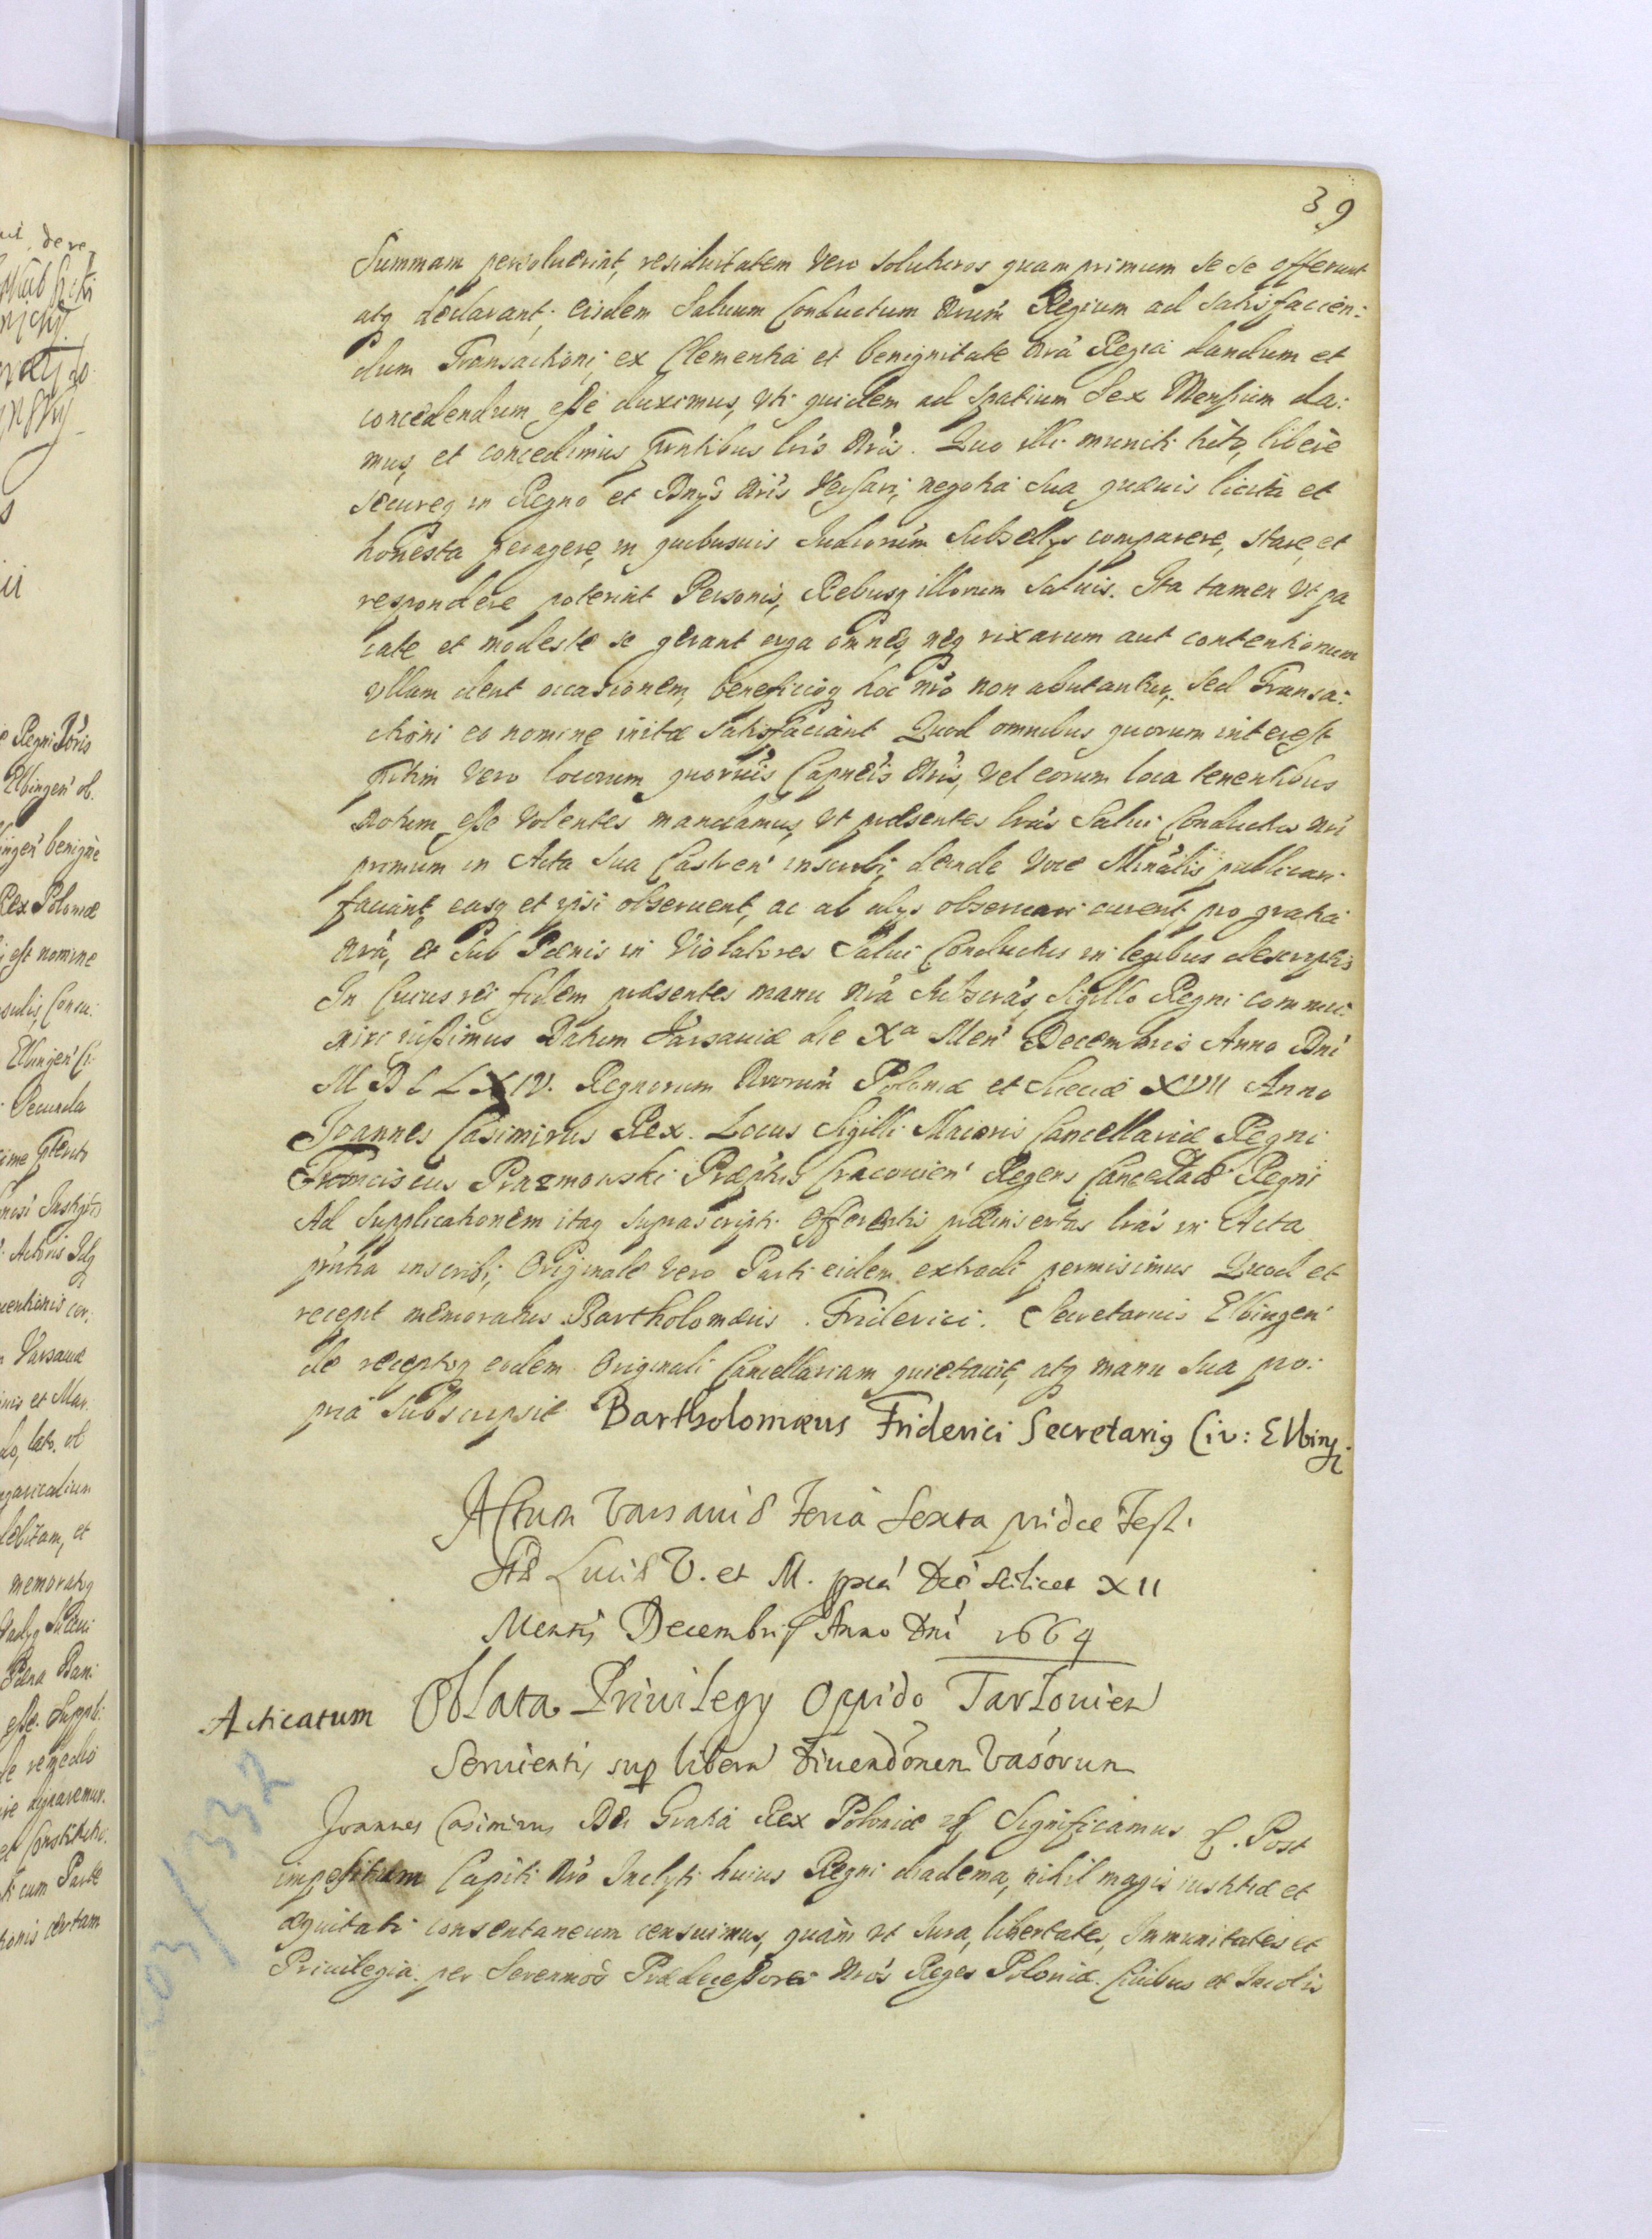 39
Summam persoluerint, residuitatem vero soluturos quam primum se se offerunt
atq declarant; eisdem Saluum Conductum nrum Regium ad satisfacien:
dum Transactioni, ex Clementia et benignitate nra Regia dandum et
concedendum esse duximus, vti quidem ad spatium Sex Mensium da:
mus, et concedimus pntibus lris nris. Quo illi muniti tuto, libere
secureq in Regno et Dnys nris Versari, negotia sua quaevis licita et
honesta peragere, in quibusuis Iudiciorum Subsellys comparere, stare, et
respondere poterint Personis, Rebusq illorum Saluis. Ita tamen vt pa
cate et modeste se gerant erga omnes, neq rixarum aut contentionum
vllam dent occasionem, beneficioq hoc nro non abutantur, Sed Transa:
ctioni eo nomine initae satisfaciant Quod omnibus quorum interest
vero locorum quorumuis Capneis nris, vel eorum loca tenentibus
notum esse volentes mandamus, vt praesentes lras Salui Conductus nri
primum in Acta sua Castren inscribi, deinde voce Minrlis publicari
faciant, easq et ipsi obseruent, ac ab alys obseruari curent pro gratia
nra, et sub Poenis in Violatores Salui Conductus in legibus descriptis
In Cuius rei fidem praesentes manu nra subscras, Sigillo Regni commu:
niri iussimus Datum Varsauiae die Xa Men Decembris Anno Dni
M D C L X IV. Regnorum nrorum Poloniae et Sueciae XVII Anno
Joannes Casimirus Rex. Locus Sigilli Maioris Cancellariae Regni
Franciscus Prazmowski Praeptus Cracouien Regens Cancellariae Regni
Ad supplicationem itaq suprascripti Offerentis praeinsertas lras in Acta
pntia inscribi, Originale vero Parti eidem extradi permisimus Quod et
recepit memoratus Bartholomaeus Friderici Secretarius Elbingen
de receptoq eodem Originali Cancellariam quietauit, atq manu sua pro:
pria Subscripsit Bartholomaeus Friderici Secretarig Civ: Elbing.
Actum Varsauiae Feria Sexta pridie Festi
Stae Luciae V. et M. Die scilicet XII
Mensis Decembris Anno Dni 1664
Acticatum Oblata Priuilegy Oppido Tarlouien
Seruientis sup liberam diuendonem Vasorum
Joannes Casimirus Dei Gratia Rex Poloniae Significamus Post
impositum Capiti nro Inclyti huius Regni diadema, nihil magis iustitiae et
aequitati consentaneum censuimus, quam vt Iura, libertates, Immunitates et
Priuilegia per Serenmos Praedecessores nros Reges Poloniae Ciuibus et Incolis